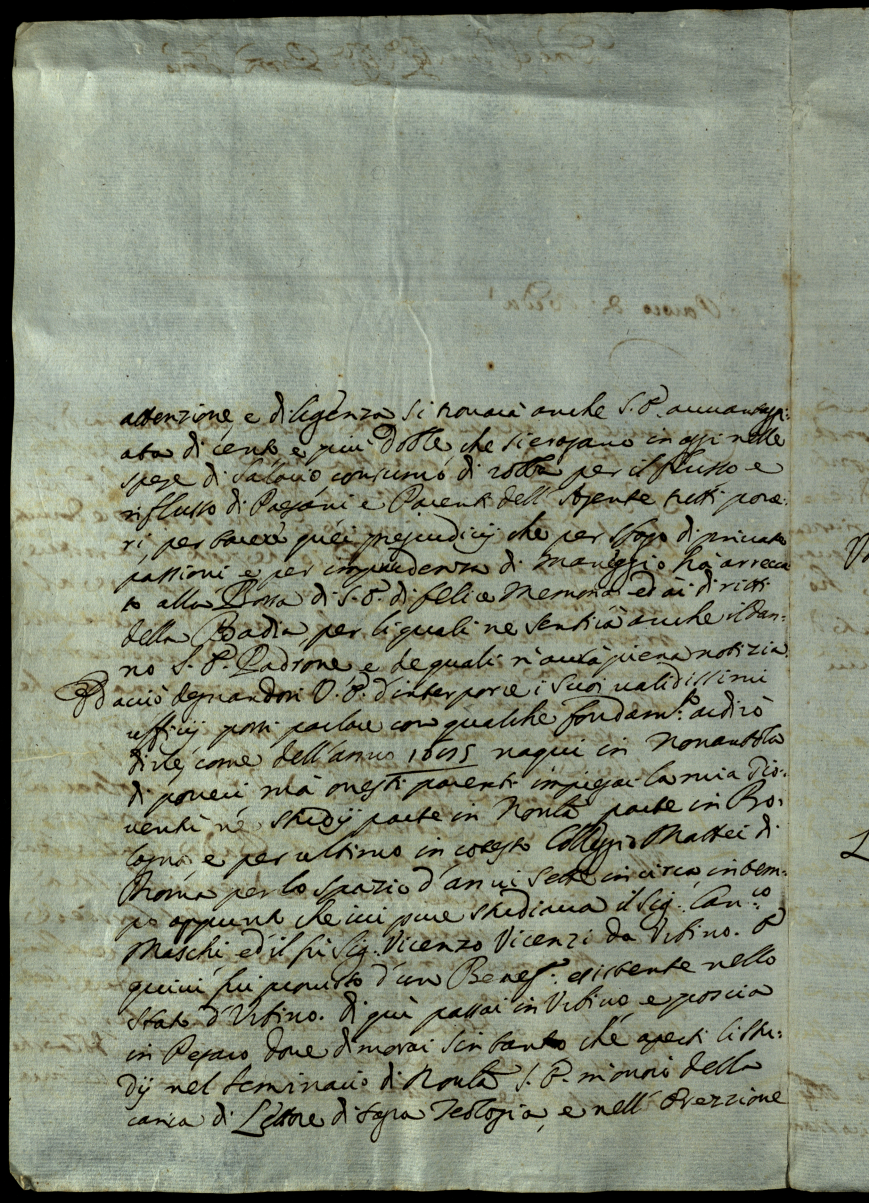 attenzione, e diligenza si trovarà anche S. P. avvantagg-
iata di cento e più doble, che si erogano in oggi nelle
spese di salario, consumo di robba per il flusso e
riflusso di Paesani e Parenti dell' Agente tutti pove-
ri, per tacere quei prejudicij che per sfogo di private
passioni e per imprudenza di maneggio hà arreca
to alla Borsa di S. P. di felice Memoria ed ai diritti
della Badia per li quali ne sentirà anche il dan-
no S. P. Padrone e de quali n'avrà piena notizia.
Ed acciò degnandosi V. P. d'interporre i suoi validissimi
ufficij possi parlare con qualche fondam.to ardirò
dirle, come dell'anno 1695 nacqui in Nonantola
di poveri mà onesti parenti impiegai la mia gio-
ventù ne studij parte in Nontla parte in Bo-
logna e per ultimo in cotesto Collegio Mattei di
Roma per lo spazio d'anni sette in circa, in tem-
po appunto che ivi pure studiava il Sig. Can.co
Maschi ed il fù Sig. Vicenzo Vicenzi da Urbino. E
quivi fui provisto d'un Benef.o esistente nello
Stato d'Urbino. Di quì passai in Urbino, e poscia
in Pesaro dove dimorai sin tanto che aperti li stu-
dij nel Seminario di Nontla S. P. m'onorò della
carica di Lettore di Sagra Teologia, e nell' Erezzione